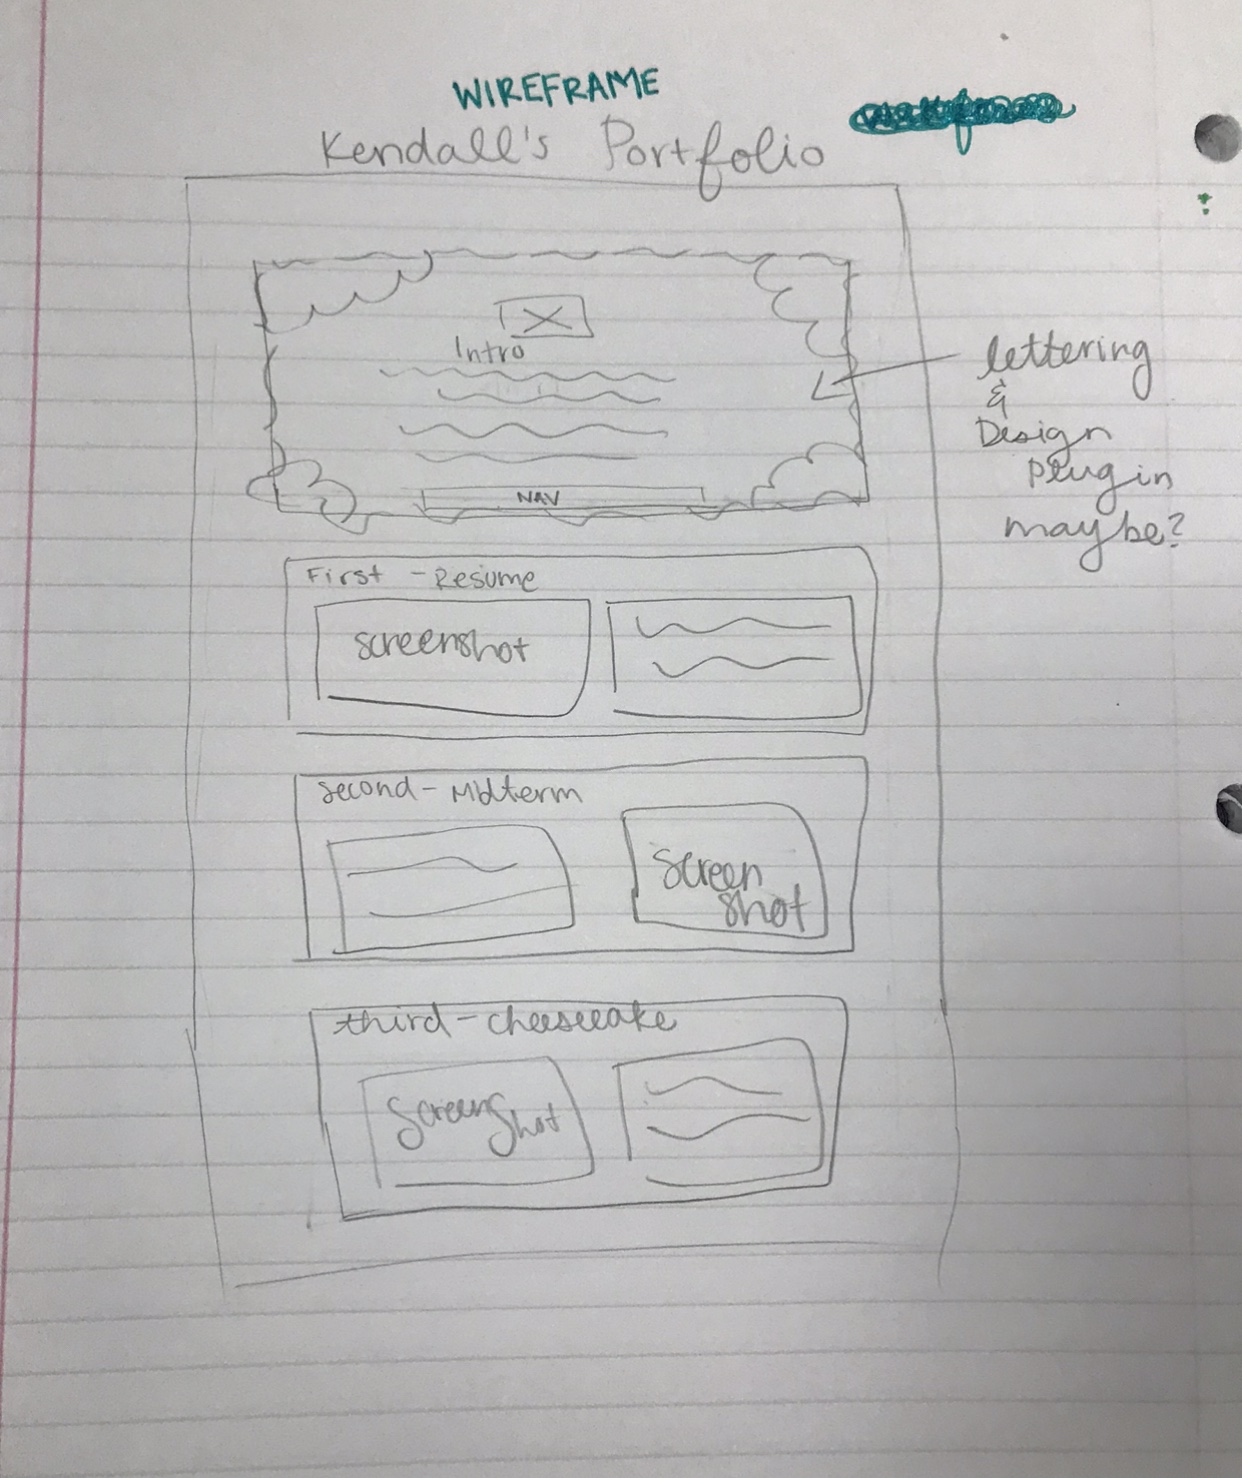 WIREFRAME
Kendall's Portfolio
Intro
NAV
lettering
&
Design
plugin
maybe?
First - Resume
screenshot
second - Midterm
Screen
shot
third - cheesecake
Screen
shot